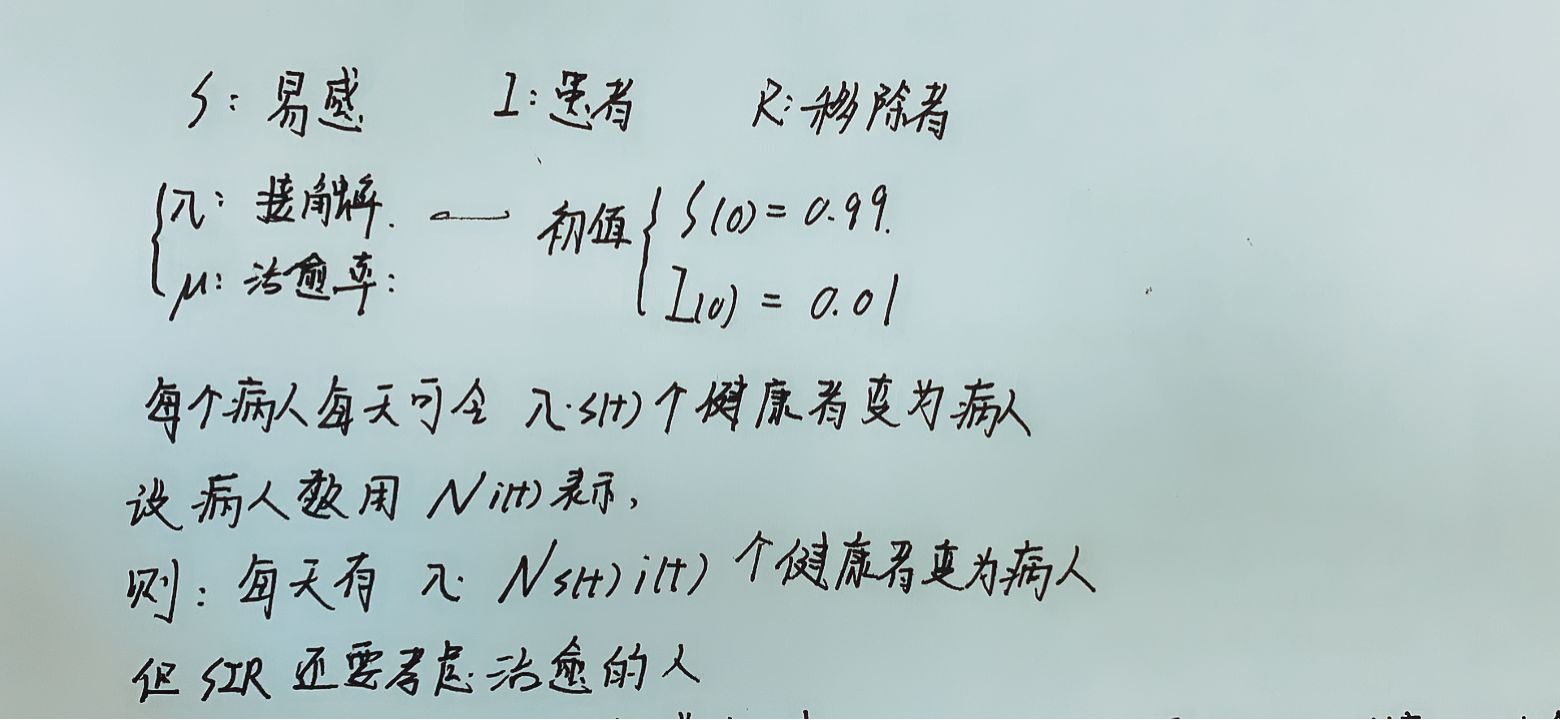 S: 易感 I: 患者 R: 移除者
λ: 接触率. — 初值 { S(0) = 0.99.
μ: 治愈率: I(0) = 0.01
每个病人每天可令 λ·s(t) 个健康者变为病人
设病人数用 N i(t) 表示,
则: 每天有 λ· N s(t) i(t) 个健康者变为病人
但 SIR 还要考虑治愈的人